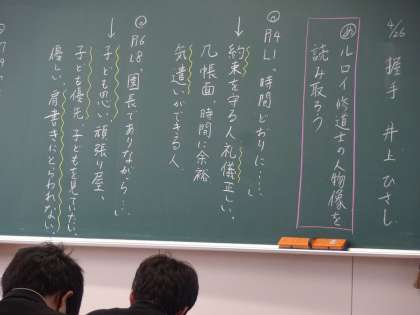 4/26 握手 井上ひさし
め ルロイ修道士の人物像を
読み取ろう
P4 L1、時間どおりに……」
↓
約束を守る人 礼儀正しい、
几帳面、時間に余裕
気遣いができる人
P6 L8、園長でありながら…」
↓
子ども思い、頑張り屋、
子ども優先 子どもを見ていたい、
優しい、肩書きにとらわれない、